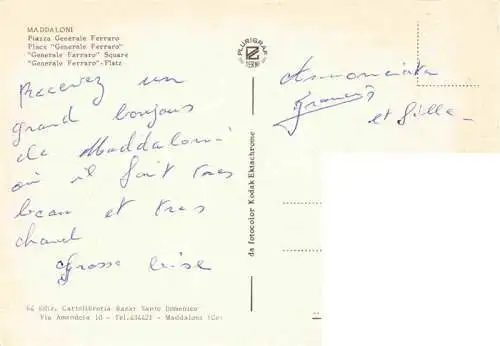 MADDALONI
Piazza Generale Ferraro
Place "Generale Ferraro"
"Generale Ferraro" Square
"Generale Ferraro"-Platz
Recevez un
grand bonjour
de Maddaloni
où il fait tres
beau et tres
chaud
Grosse bise
Annonciata
Francis
et Gilles
PLURIGRAF
TERNI
da fotocolor Kodak Ektachrome
64 Ediz. Cartolibreria Bazar Santo Domenico
Via Amendola 10 - Tel. 434421 - Maddaloni (Ce)